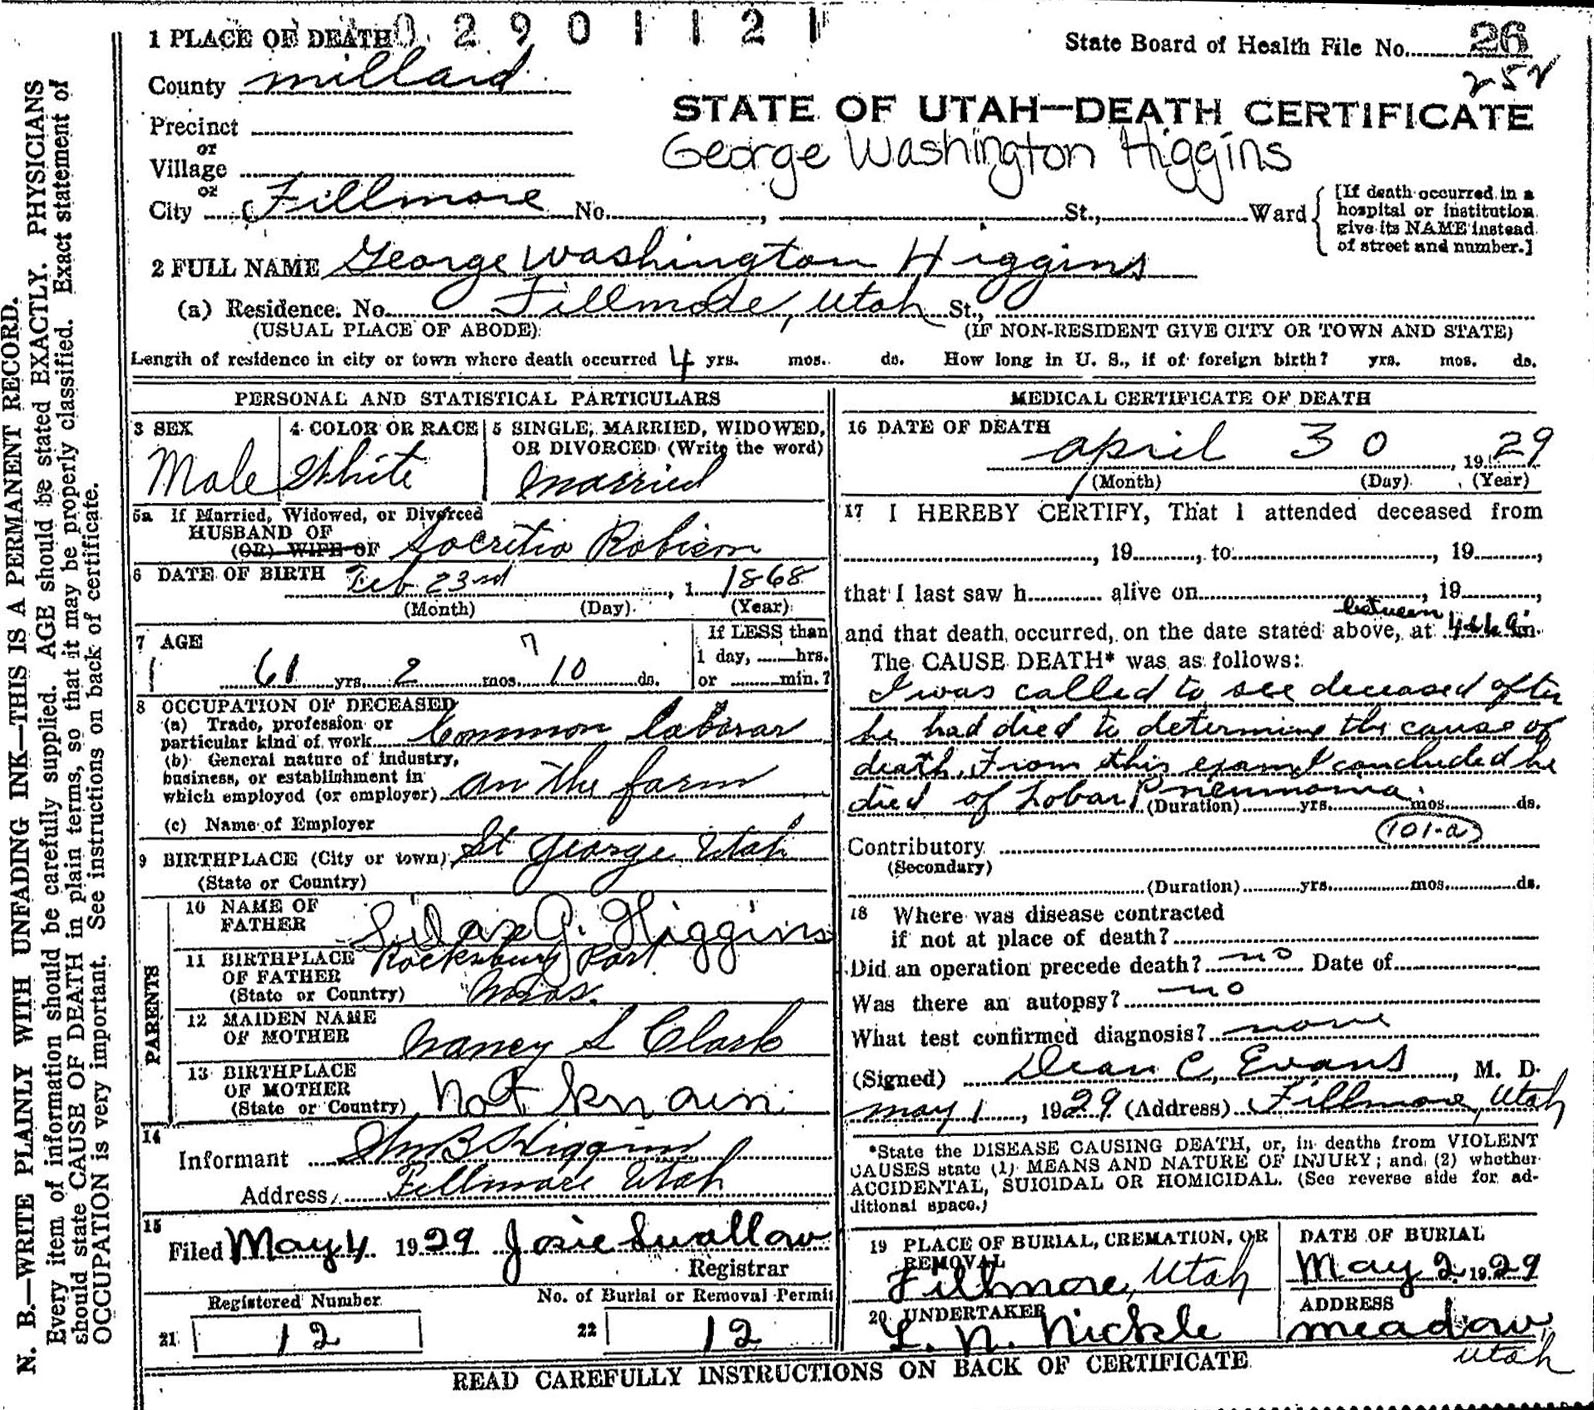 02901121
1 PLACE OF DEATH
State Board of Health File No. 26
252
County Millard
STATE OF UTAH—DEATH CERTIFICATE
Precinct
or
George Washington Higgins
Village
or
City Fillmore No. , St., Ward
[If death occurred in a
hospital or institution
give its NAME instead
of street and number.]
2 FULL NAME George Washington Higgins
(a) Residence. No. Fillmore, Utah St.,
(USUAL PLACE OF ABODE) (IF NON-RESIDENT GIVE CITY OR TOWN AND STATE)
Length of residence in city or town where death occurred 4 yrs. mos. ds. How long in U. S., if of foreign birth? yrs. mos. ds.
PERSONAL AND STATISTICAL PARTICULARS
3 SEX
Male
4 COLOR OR RACE
White
5 SINGLE, MARRIED, WIDOWED,
OR DIVORCED (Write the word)
Married
5a If Married, Widowed, or Divorced
HUSBAND OF
(OR) WIFE OF Robison
6 DATE OF BIRTH Feb 23rd, 1 1868
(Month) (Day) (Year)
7 AGE
7
61 yrs. 2 mos. 10 ds.
If LESS than
1 day, hrs.
or min.?
8 OCCUPATION OF DECEASED
(a) Trade, profession or
particular kind of work Common laborar
(b) General nature of industry,
business, or establishment in
which employed (or employer) on the farm
(c) Name of Employer
9 BIRTHPLACE (City or town) St George Utah
(State or Country)
PARENTS
10 NAME OF
FATHER Silas G. Higgins
11 BIRTHPLACE
OF FATHER Rocksbury Port
(State or Country) Mas.
12 MAIDEN NAME
OF MOTHER Nancy S Clark
13 BIRTHPLACE
OF MOTHER
(State or Country) Not
14
Informant Wm B Higgins
Address Fillmore Utah
15
Filed May 4 1929 Josie Swallow
Registrar
Registered Number
21 12
No. of Burial or Removal Permit
22 12
MEDICAL CERTIFICATE OF DEATH
16 DATE OF DEATH
April 30, 1929
(Month) (Day) (Year)
17 I HEREBY CERTIFY, That I attended deceased from
, 19 , to , 19 ,
that I last saw h alive on , 19 ,
between
and that death occurred, on the date stated above, at m.
The CAUSE DEATH* was as follows:
I was called to see deceased after
he had died to determine the cause of
death. From this exam I concluded he
died of Lobar Pneumonia.
(Duration) yrs. mos. ds.
101-a
Contributory
(Secondary)
(Duration) yrs. mos. ds.
18 Where was disease contracted
if not at place of death?
Did an operation precede death? no Date of
Was there an autopsy? no
What test confirmed diagnosis? none
(Signed) Dean C. Evans, M. D.
May 1, 1929 (Address) Fillmore, Utah
*State the DISEASE CAUSING DEATH, or, in deaths from VIOLENT
CAUSES state (1) MEANS AND NATURE OF INJURY; and (2) whether
ACCIDENTAL, SUICIDAL OR HOMICIDAL. (See reverse side for ad-
ditional space.)
19 PLACE OF BURIAL, CREMATION, OR
REMOVAL
Fillmore, Utah
DATE OF BURIAL
May 2 1929
20 UNDERTAKER
L. N. Nickle
ADDRESS
Meadow
Utah
READ CAREFULLY INSTRUCTIONS ON BACK OF CERTIFICATE
N. B.—WRITE PLAINLY WITH UNFADING INK—THIS IS A PERMANENT RECORD.
Every item of information should be carefully supplied. AGE should be stated EXACTLY. PHYSICIANS
should state CAUSE OF DEATH in plain terms, so that it may be properly classified. Exact statement of
OCCUPATION is very important. See instructions on back of certificate.